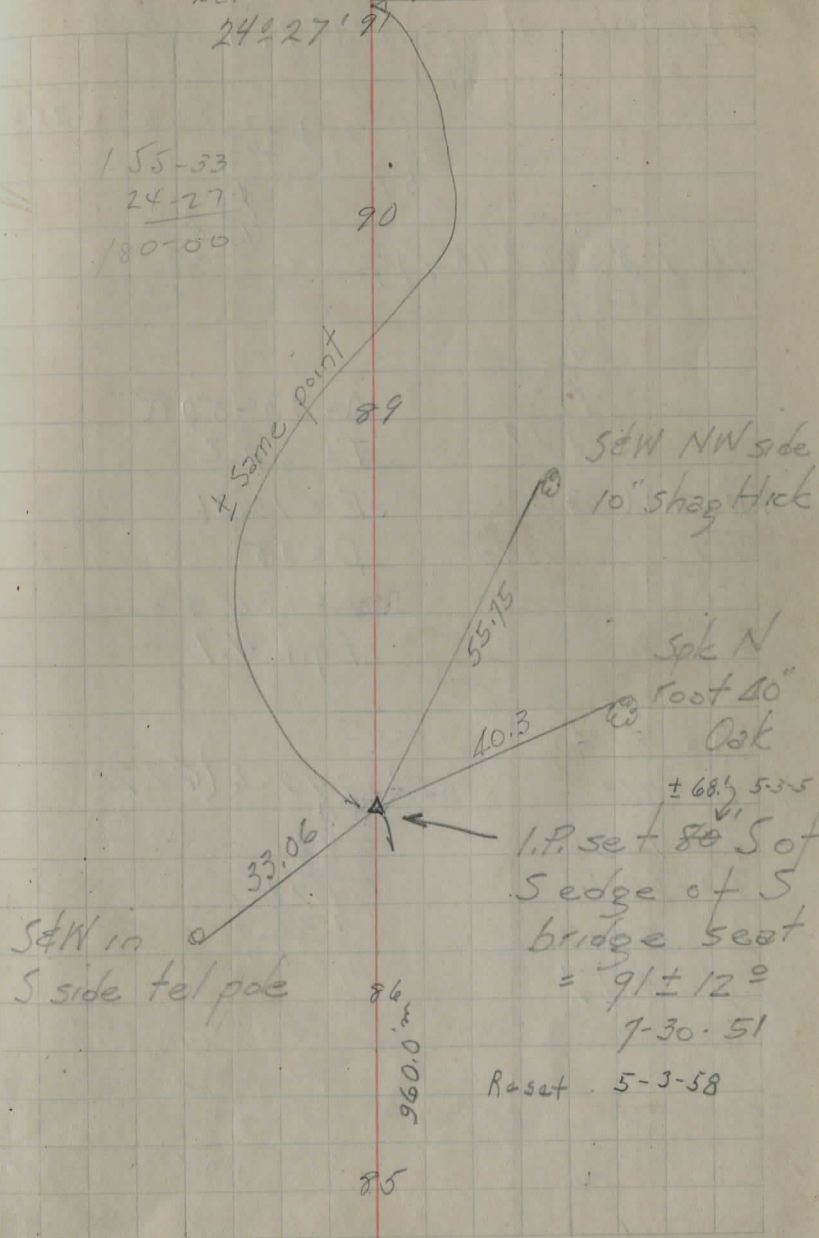 24º27' 91
155-33
24-27
180-00
90
x same point
89
S&W NW side
10" Shag Hick
55.75
Spk N
root 40"
Oak
40.3
± 68.' 5-3-5
I.P. set 80' S of
S edge of S
bridge seat
= 91±12º
7-30-51
33.06
S&W in
S side tel pole
86
960.0'm
Reset 5-3-58
85